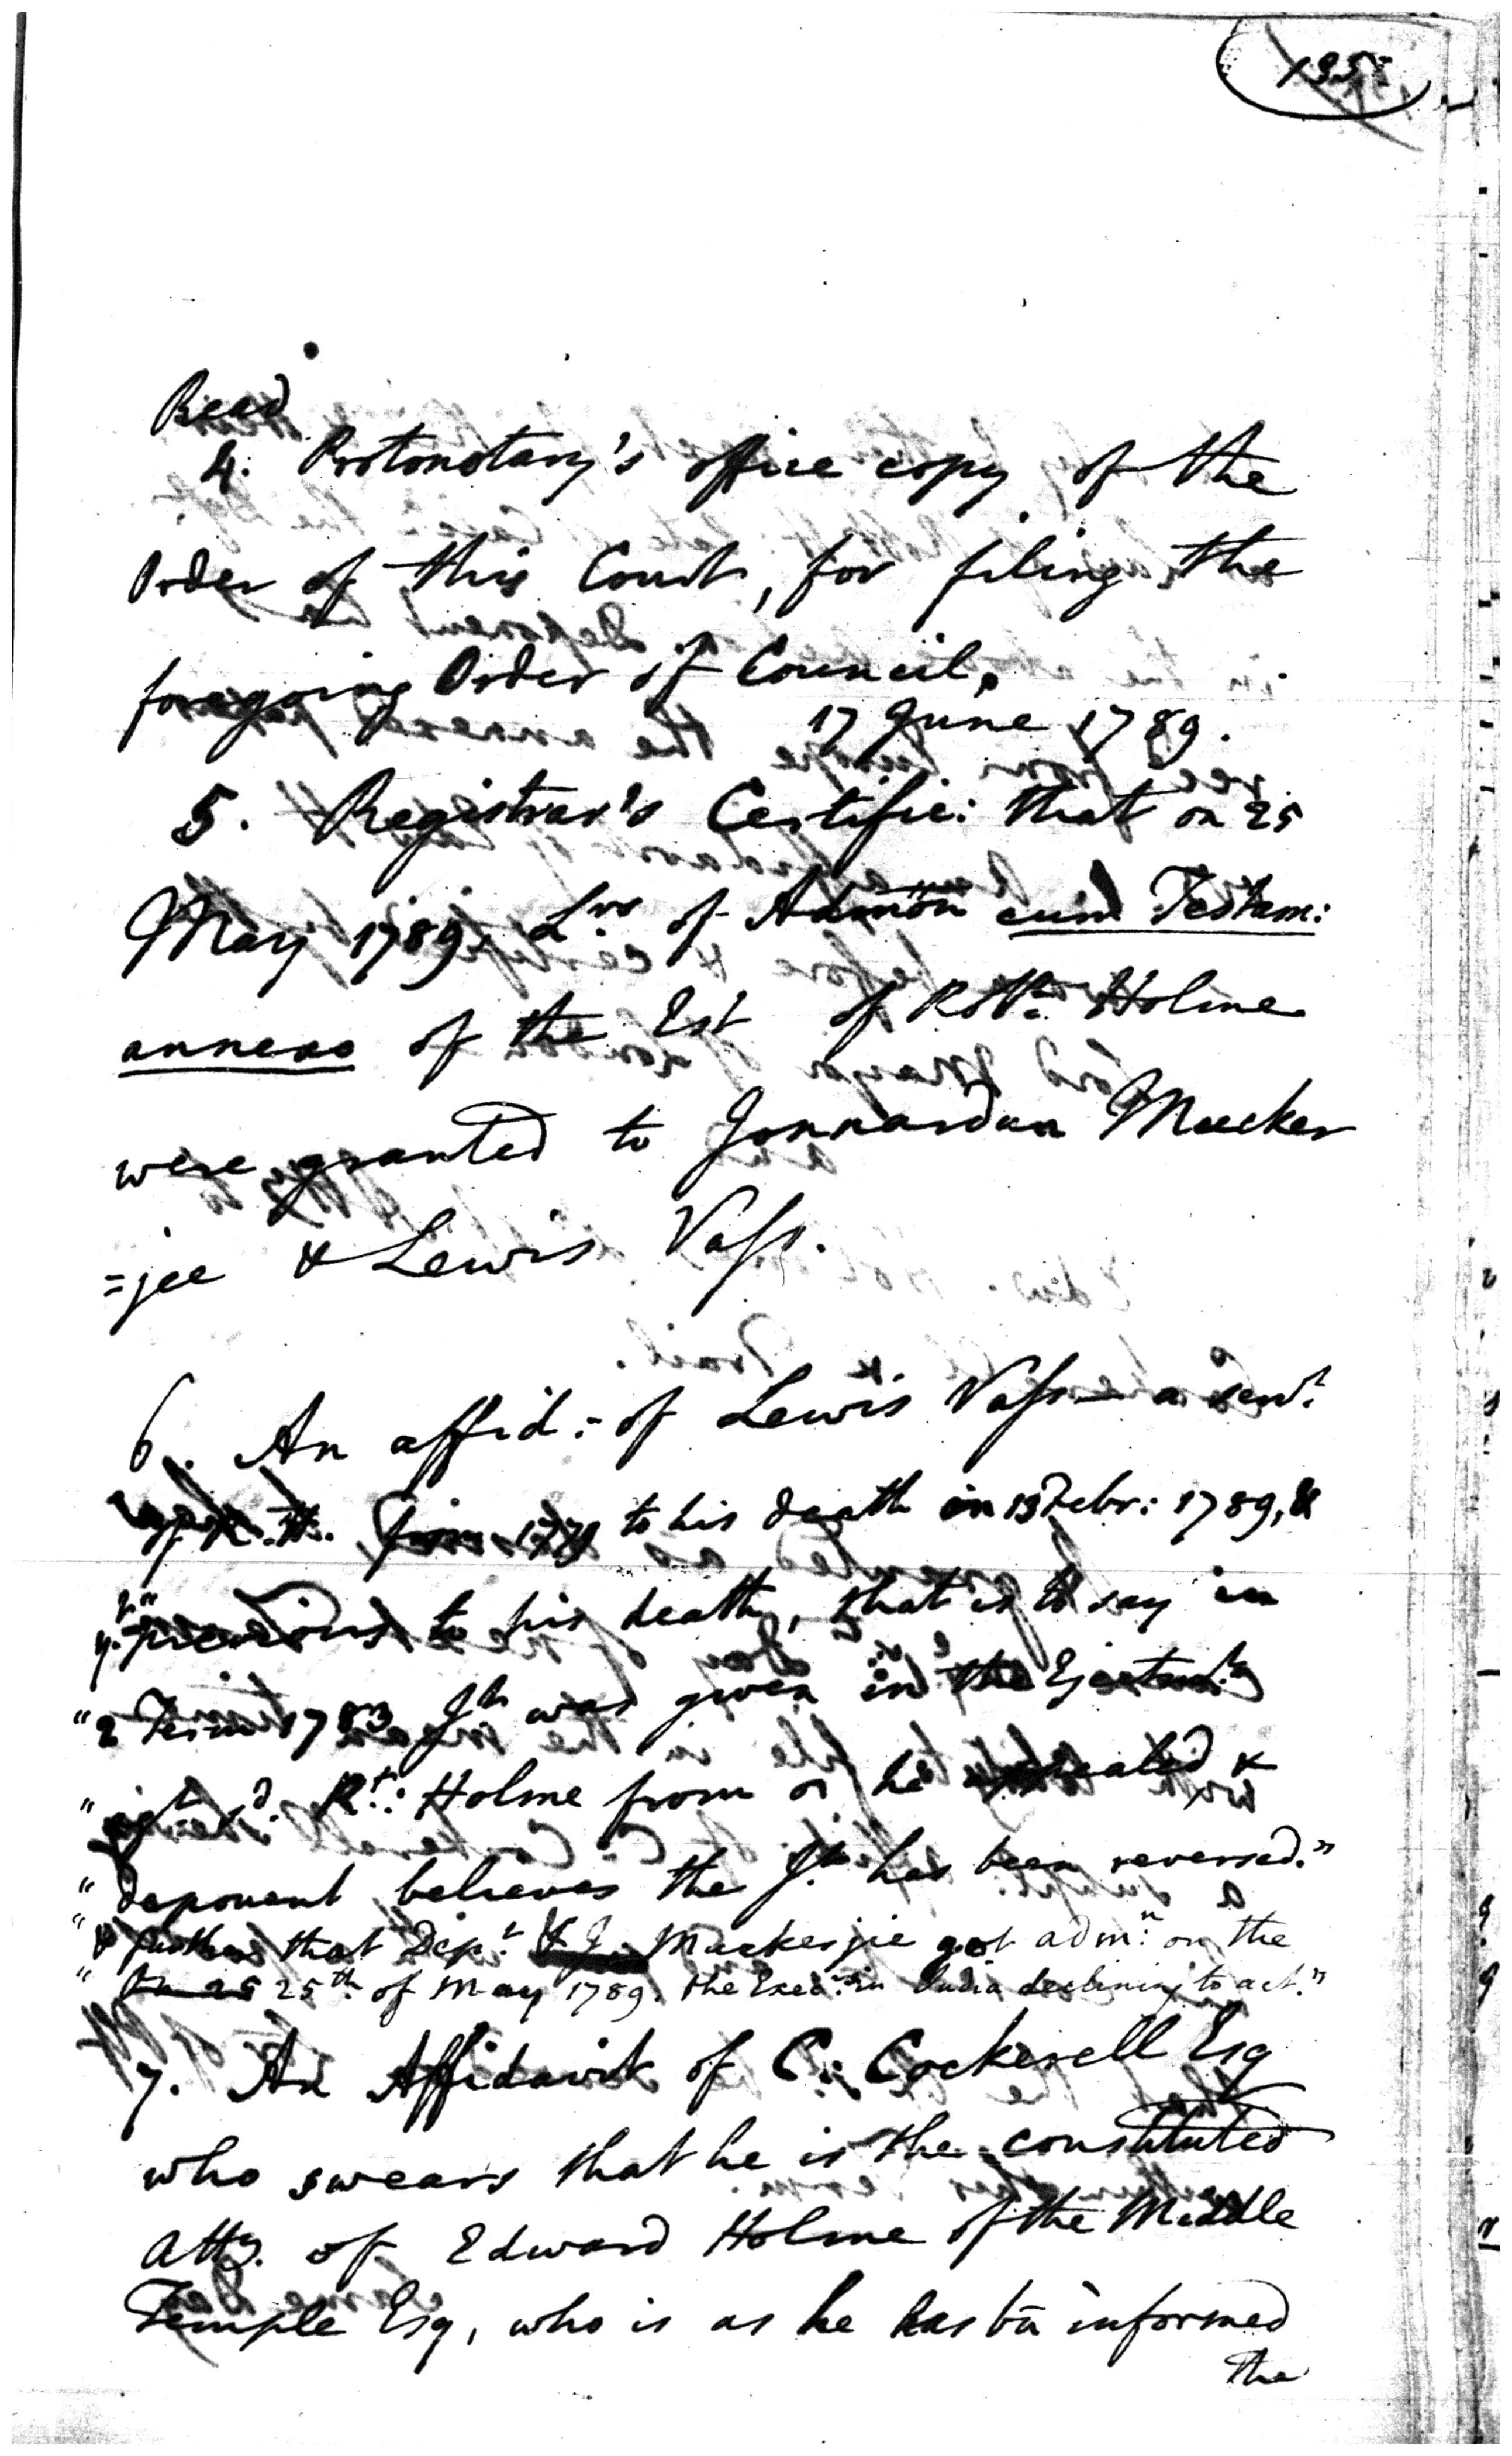 Read
4. Protonotary's office copy of the
Order of this Court, for filing the
foregoing Order of Council.
17 June 1789.
5. Registrar's Certific: that on 25
May 1789, Lrs of Admōn cum Testam:
annexo of the Est of Robt: Holme
were granted to Jonnardun Mucker
=jee & Lewis Vass.
6. An affid: of Lewis Vass — a servt
of R. H. from 1779 to his death on 13 Febr: 1789, &
" previous to his death, that is to say in
" 2 Term 1783 Jt was given in the Ejectmt
" agt sd. Rt: Holme from
" deponent believes the Jt has been reversed."
" & further that Dept & J. Muckerjee got admn: on the
" 25th of May 1789. the Execrs in India declining to act."
7. An Affidavit of C: Cockerell Esq
who swears that he is the constituted
Atty. of Edward Holme of the Middle
Temple Esq, who is as he has bn informed
the